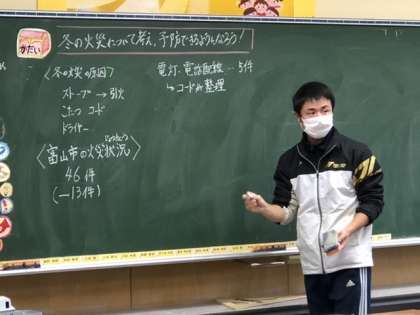 かだい
冬の火災について考え、予防できるようになろう！
〈冬の火災の原因〉
ストーブ → 引火
こたつ コード
ドライヤー
〈富山市の火災状況〉
じょうきょう
46件
(－13件)
電灯・電話配線…5件
↳コードの整理